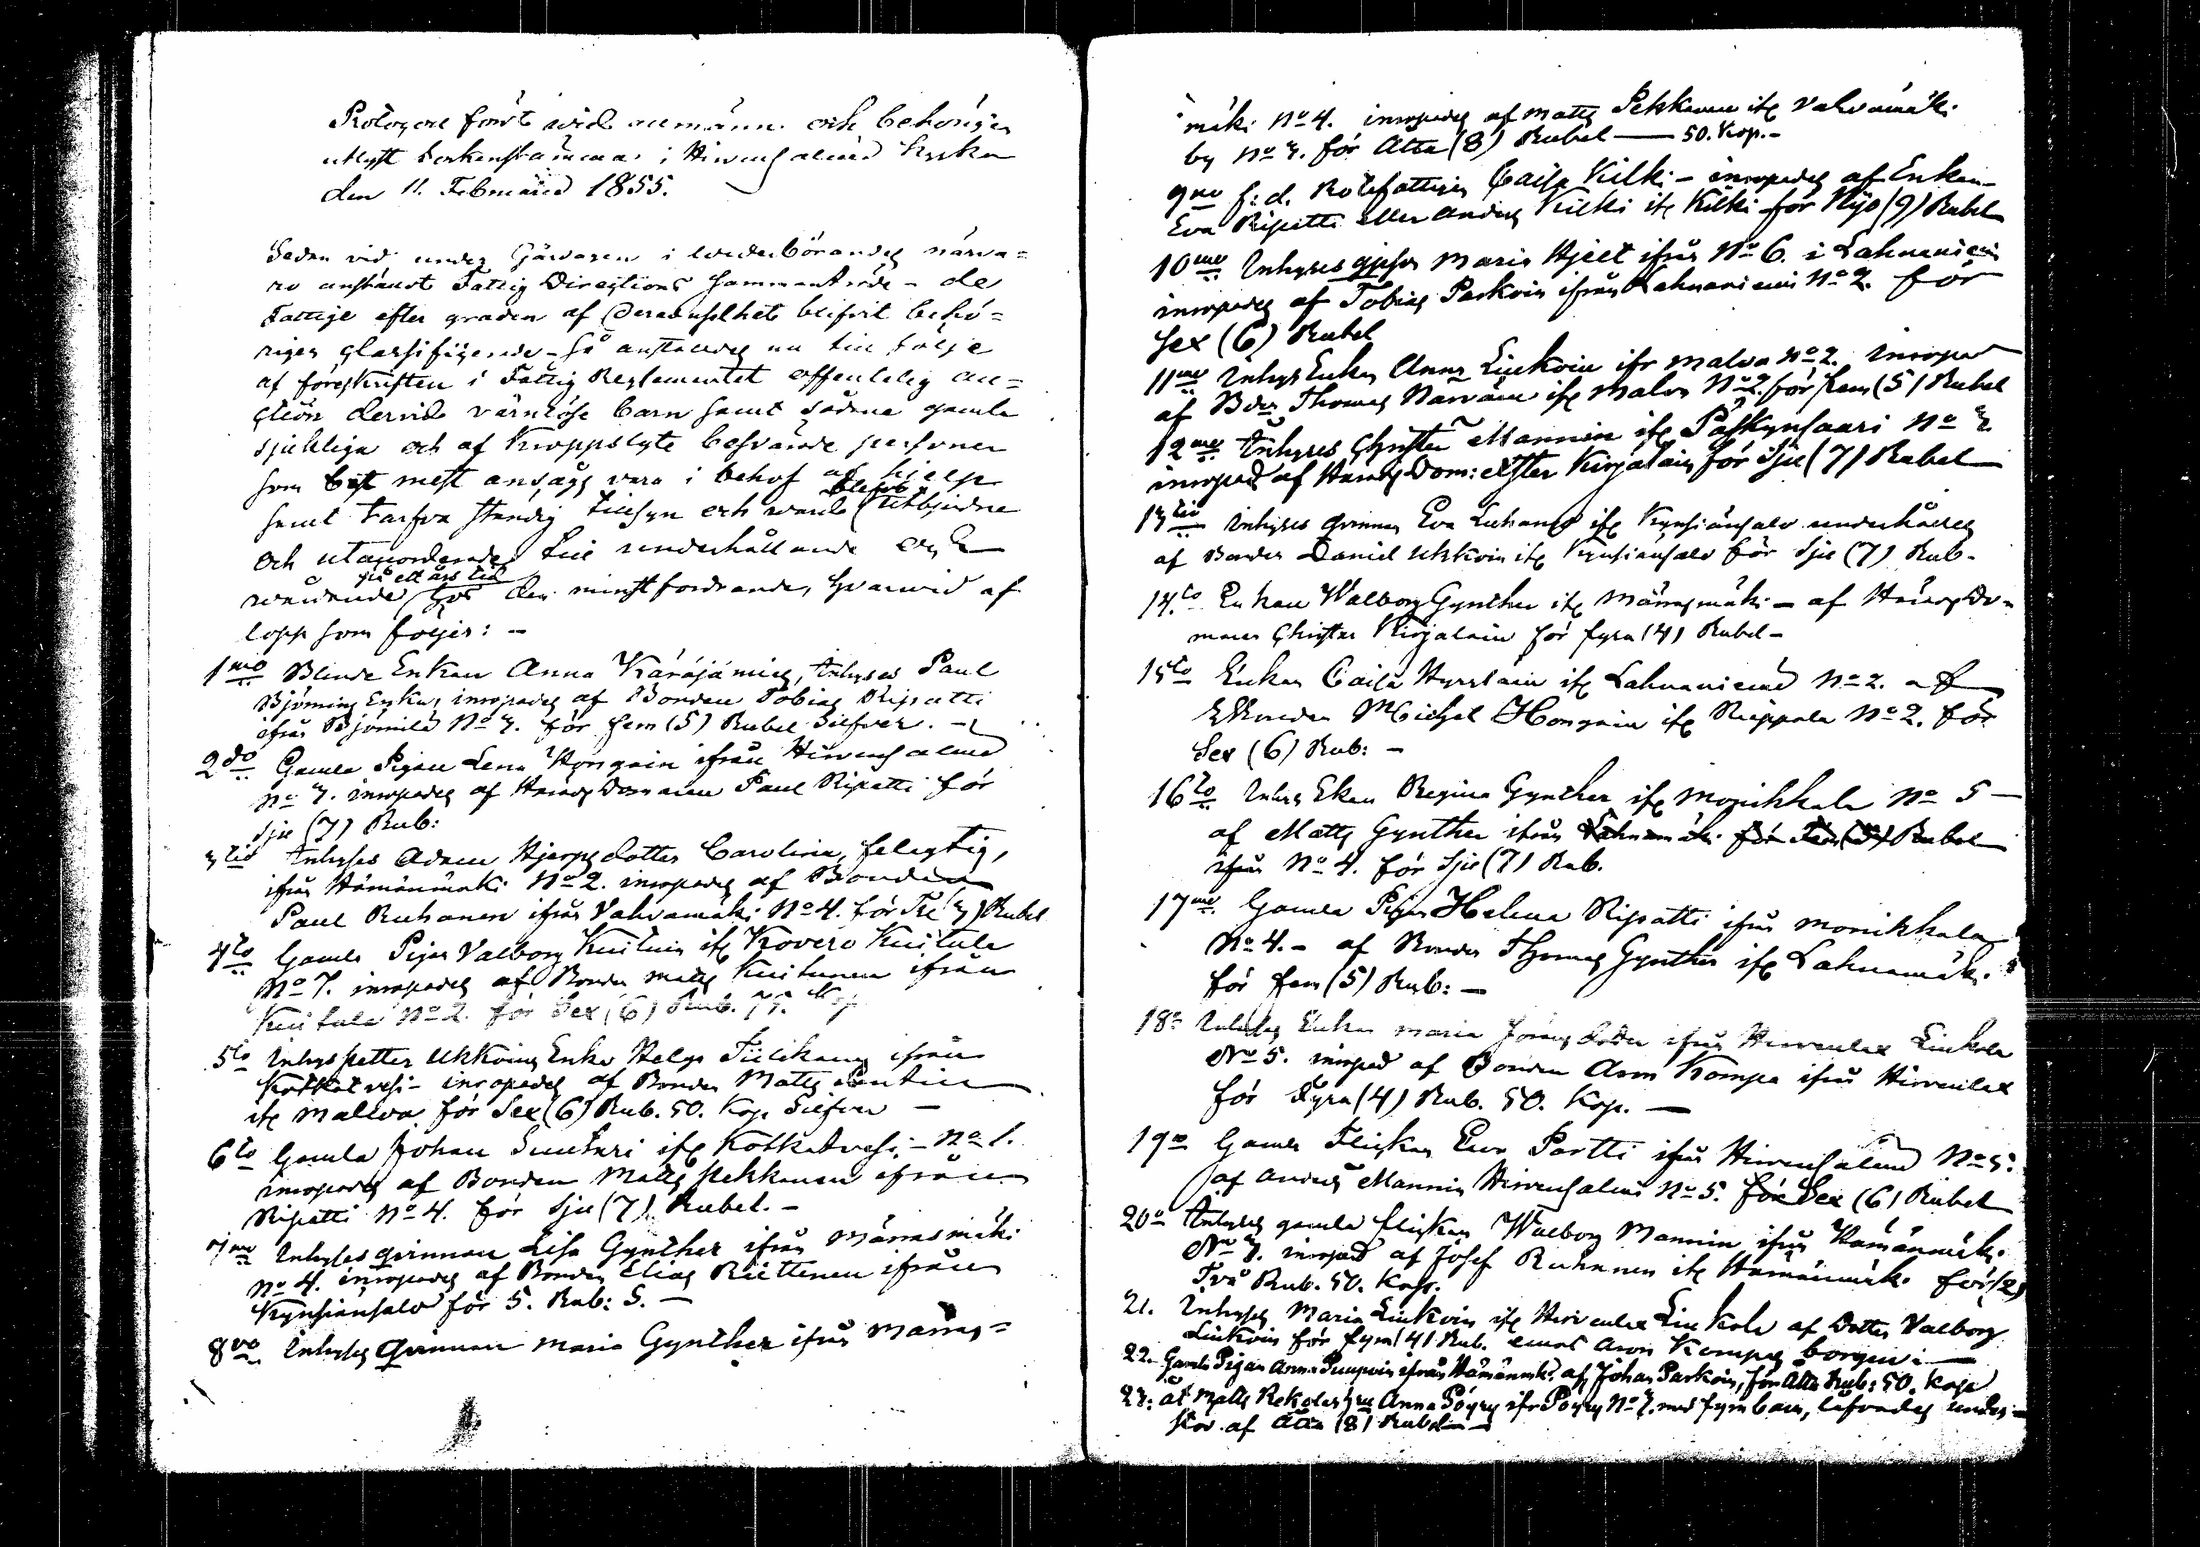 Protocoll fördt wid allmänn och behörigen
utlyst Sockenstämma i Hirvensalmi Kyrka
den 11. Februarii 1855.
Sedan vid under Gårdagen i wederbörandes närva=
ro anstäldt Fattig Directions Sammanträde - de
Fattige efter graden af deras uselhet blifvit behö=
rigen classificerade - så anstäldes nu till följe
af föreskriften i Fattig Reglementet offentelig au=
ction dervid värnlöse barn samt sådane gamla
sjukliga och af Kroppslyte besvärade personer
som mest ansågs vara i behof af hjelp
samt tarfva ständig tillsyn och wård blefvo utbjudne
och utauctionerades till underhållande
på ett års tid den minstfordrande, hvarwid af
lopp som följer: -
1mo Blinde Enkan Anna Käräjämies, Inhyses Paul
Björnins Enka, inropades af Bonden Tobias Ripatti
ifrån Björnilä No 3. för fem (5) Rubel Silfver. -
2do Gamla Pigan Lena Hongain ifrån Hirvensalmi
No 3. inropades af Härads Domaren Paul Ripatti för
Sju (7) Rub:
3tio Inhyses Adam Hjerpes dotter Carolina,
ifrån Hämänmäki No 2. inropades af Bonden
Paul Ruhanen ifrån Vahvamäki No 4. för Tre (3) Rubel
4to Gamla Pigan Valborg Kuituin ifr Kovero Kuitula
No 7. inropades af Bonden Matts Kuitunen ifrån
Kuitula No 2. för Sex (6) Rub. 75. Kop
5to Inhyses Petter Ukkoins Enka Helga Tiilikain ifrån
Kotkatvesi - inropades af Bonden Matts
ifr Malva för Sex (6) Rub. 50. Kop Silfver -
6to Gamla Johan ifr Kotkatvesi - No 1.
inropades af Bonden Matts Pekkanen ifrån
Ripatti No 4. för Sju (7) Rubel. -
7mo Inhyses qvinnan Lisa Gynther ifrån Männasmäki
No 4. inropades af Bonden Elias Riettinen ifrån
Kynsiänsalo för 5. Rub: S. -
8vo Inhyses qvinnan Maria Gynther ifrån Männas=
mäki No 4. inropades af Matts Pekkanen ifr Vahvamäki
by No 3. för Åtta (8) Rubel — 50. Kop. -
9no f:d. Rotefattigen Caisa Kilki - inropades af Enkan
Eva Ripatti eller Anders Kilki ifr Kilki för Nijo (9) Rubel
10mo Inhyses Maria Hjelt ifrån No 6. i Lahnaniemi
inropades af Tobias Parkoin ifrån Lahnaniemi No 2. för
Sex (6) Rubel
11mo Inhys Enkan Anna Liukoin ifr Malva No 2. Inropad
af Bden Thomas Narvain ifr Malva No 2. för fem (5) Rubel
12mo Inhyses Christer Mannin ifr Päskynsaari No 3
inropad af Härads Dom: Christer Kirjalain för Sju (7) Rubel
13tio Inhyses qvinnan Eva ifr Kynsiänsalo underhålles
af Bonden Daniel Ukkoin ifr Kynsiänsalo för Sju (7) Rub-
14to Enkan Walborg Gynther ifr Männasmäki - af Härads Do=
maren Christer Kirjalain för fyra (4) Rubel -
15to Enkan Caisa ifr Lahnaniemi No 2. af
Bonden Michel Hongain ifr No 2. för
Sex (6) Rub: -
16to Inhys Ekan Regina Gynther ifr Monikkala No 5 -
af Matts Gynther ifrån Lahnamäki för Rubel
ifrån No 4. för Sju (7) Rub.
17mo Gamla Pigan Helena Ripatti ifrån Monikkala
No 4. - af Bonden Thomas Gynther ifr Lahnamäki
för fem (5) Rub: -
18o Inhyses Enkan Maria dotter ifrån Hirvenlax Liukola
No 5. inropad af Bonden Aron Kompa ifrån Hirvenlax
för Fyra (4) Rub. 50. Kop. -
19o Gamla Flickan Eva Partti ifrån Hirvensalmi No 5.
af Anders Mannin Hirvensalmi No 5. för Sex (6) Rubel
20o Inhyses gamla flickan Walborg Mannin ifrån Hämänmäki
No 3. inropad af Josef Ruhanen ifr Hämänmäki för (2)
Två Rub. 50. Kop.
21. Inhyses Maria Liukoin ifr Hirvenlax Liukola af Dotter Valborg
Liukoin för fyra (4) Rub. emot Aron Kompas borgen -
22. Gamla Pigan Anna ifrån Hämänmäki af Johan Parkoin, för Åtta Rub: 50. Kop
23. åt Matts hustru Anna Pöyry ifr Pöyry No 3. med fyra barn, lefvades under=
stöd af Åtta (8) Rubel -